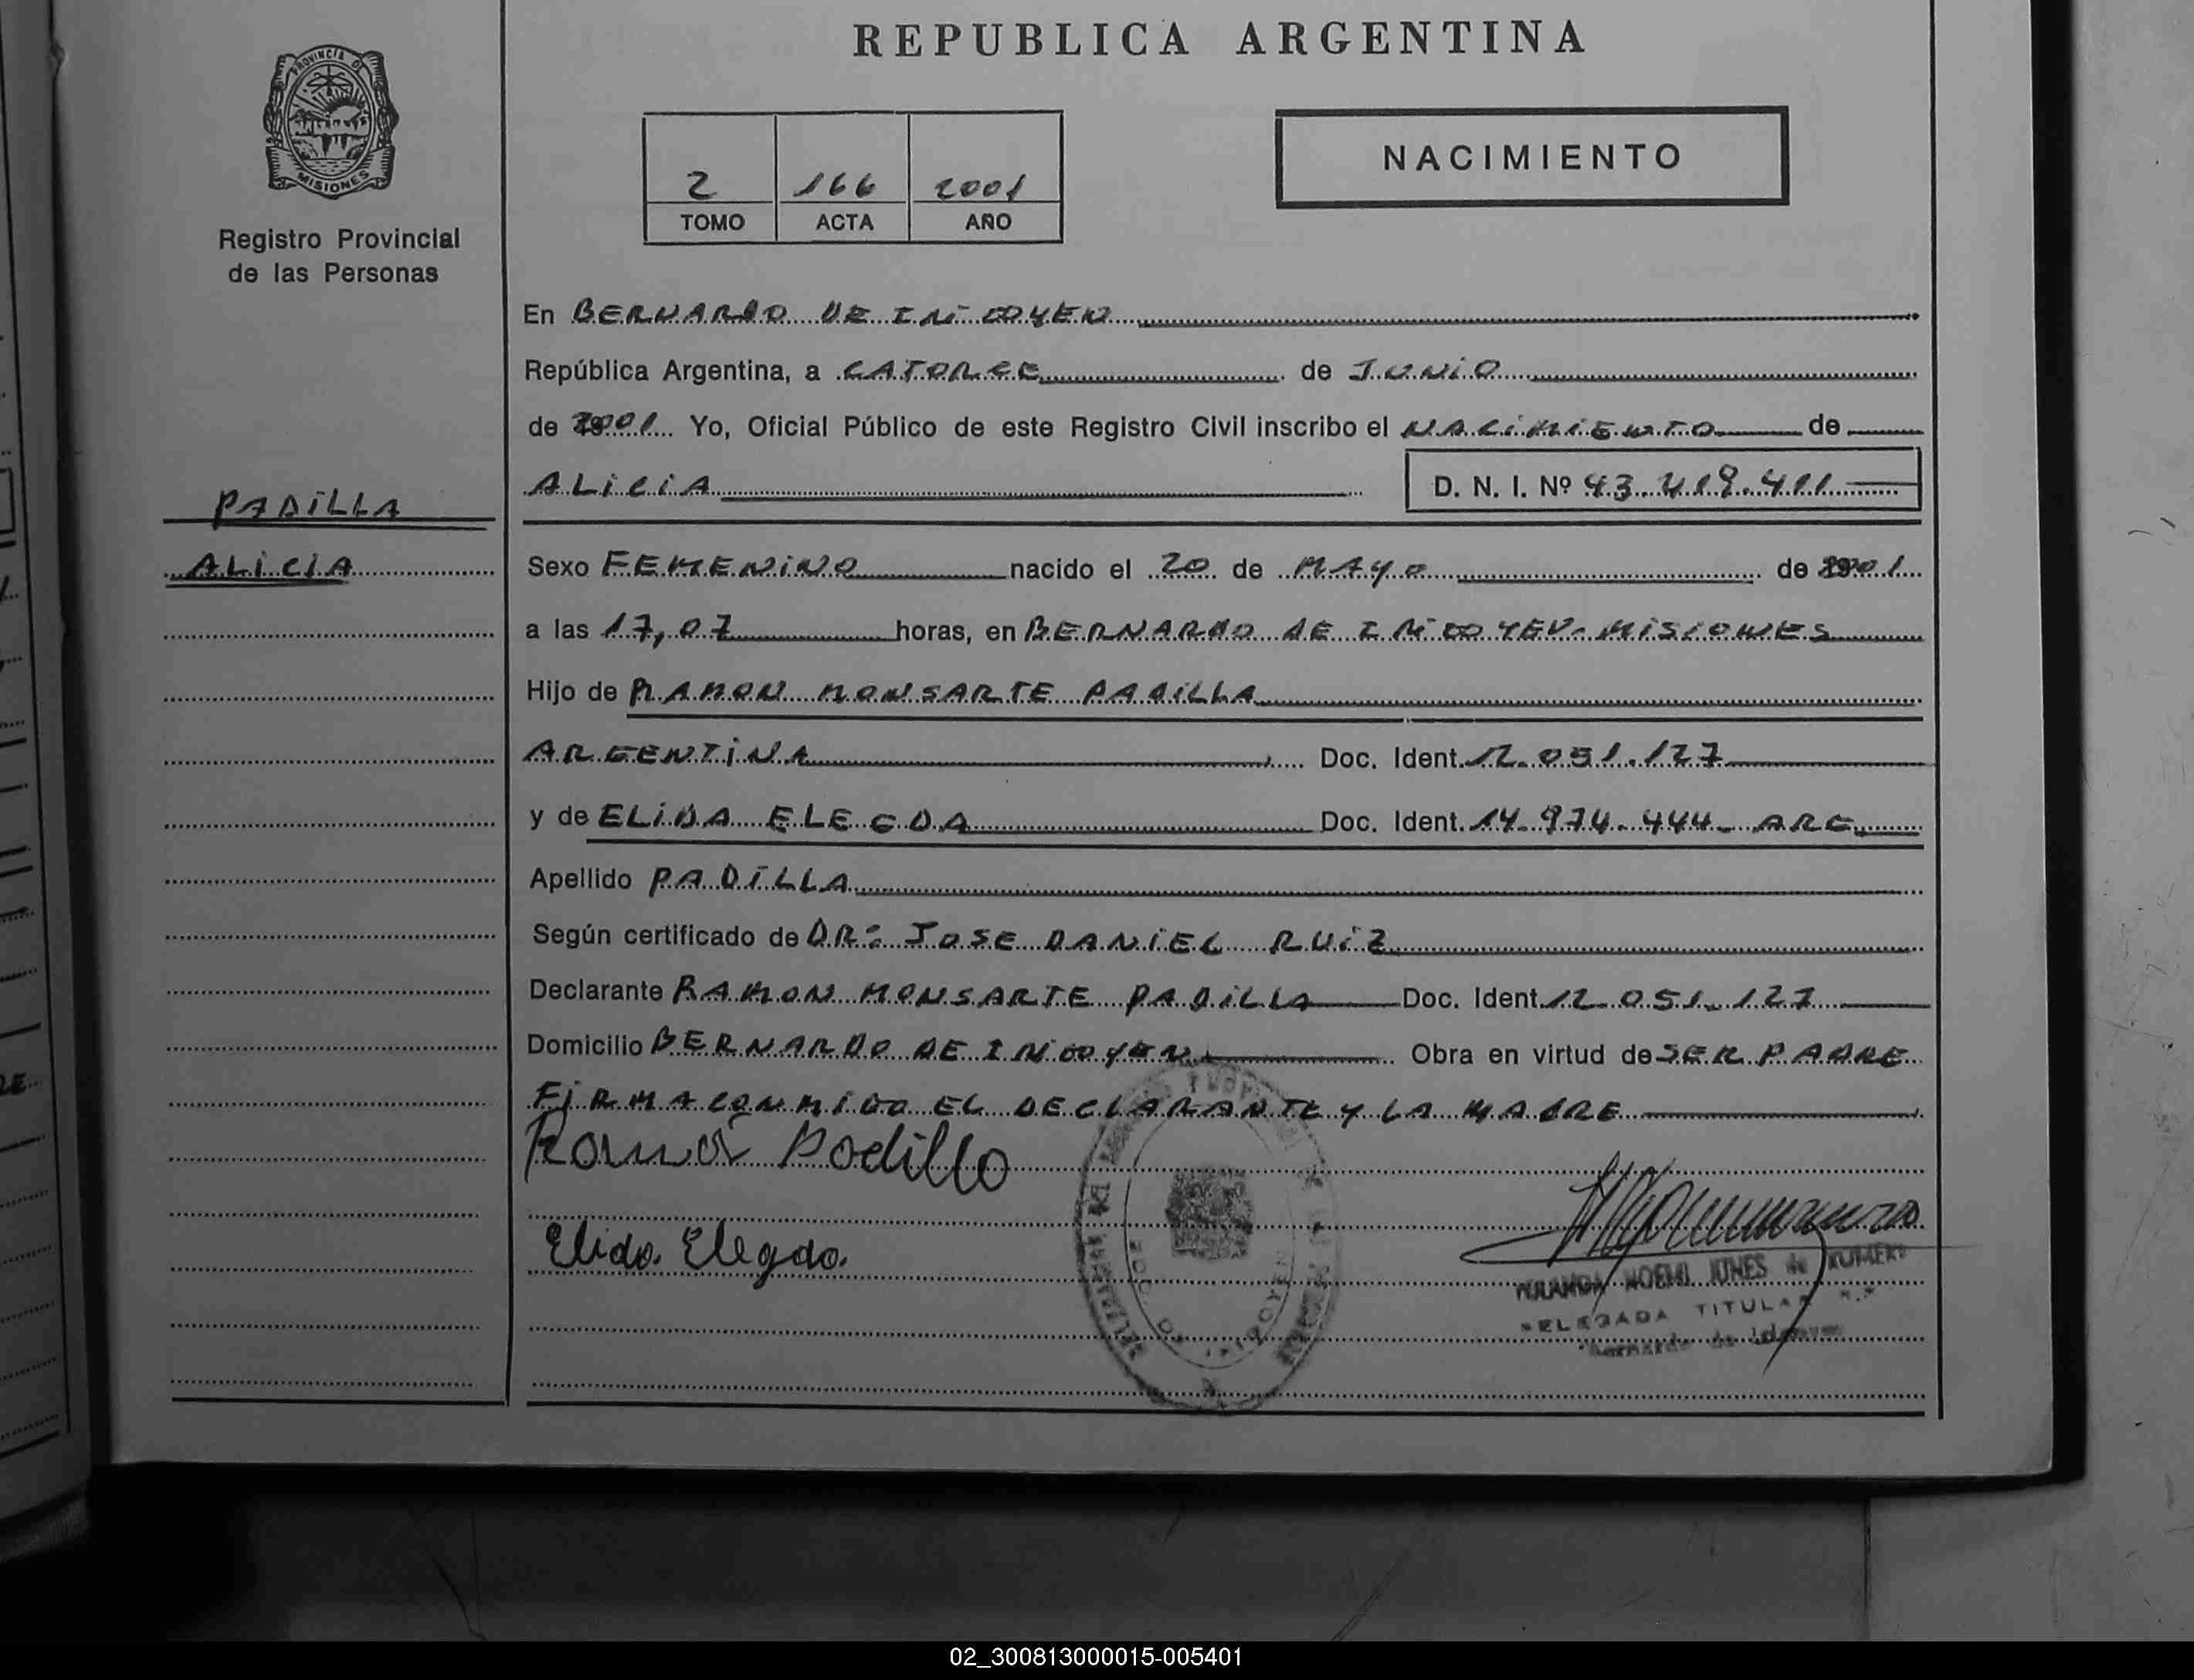 REPUBLICA ARGENTINA
PROVINCIA DE
MISIONES
Registro Provincial
de las Personas
2 166 2001
TOMO ACTA AÑO
NACIMIENTO
En BERNARDO DE IRIGOYEN
República Argentina, a CATORCE de JUNIO
de 2001 Yo, Oficial Público de este Registro Civil inscribo el NACIMIENTO de
ALICIA D. N. I. Nº 43.419.411
PADILLA
ALICIA
Sexo FEMENINO nacido el 20 de MAYO de 2001
a las 17,07 horas, en BERNARDO DE IRIGOYEN - MISIONES
Hijo de RAMON MONSARTE PADILLA
ARGENTINA Doc. Ident. 12.051.127
y de ELIDA ELEGDA Doc. Ident. 14.974.444- ARG.
Apellido PADILLA
Según certificado de DR: JOSE DANIEL RUIZ
Declarante RAMON MONSARTE PADILLA Doc. Ident. 12.051.127
Domicilio BERNARDO DE IRIGOYEN Obra en virtud de SER PADRE
FIRMA CONMIGO EL DECLARANTE Y LA MADRE
Ramón Padilla
Elida Elegda
NOEMI de
DELEGADA TITULAR
Bernardo de Irigoyen
02_300813000015-005401